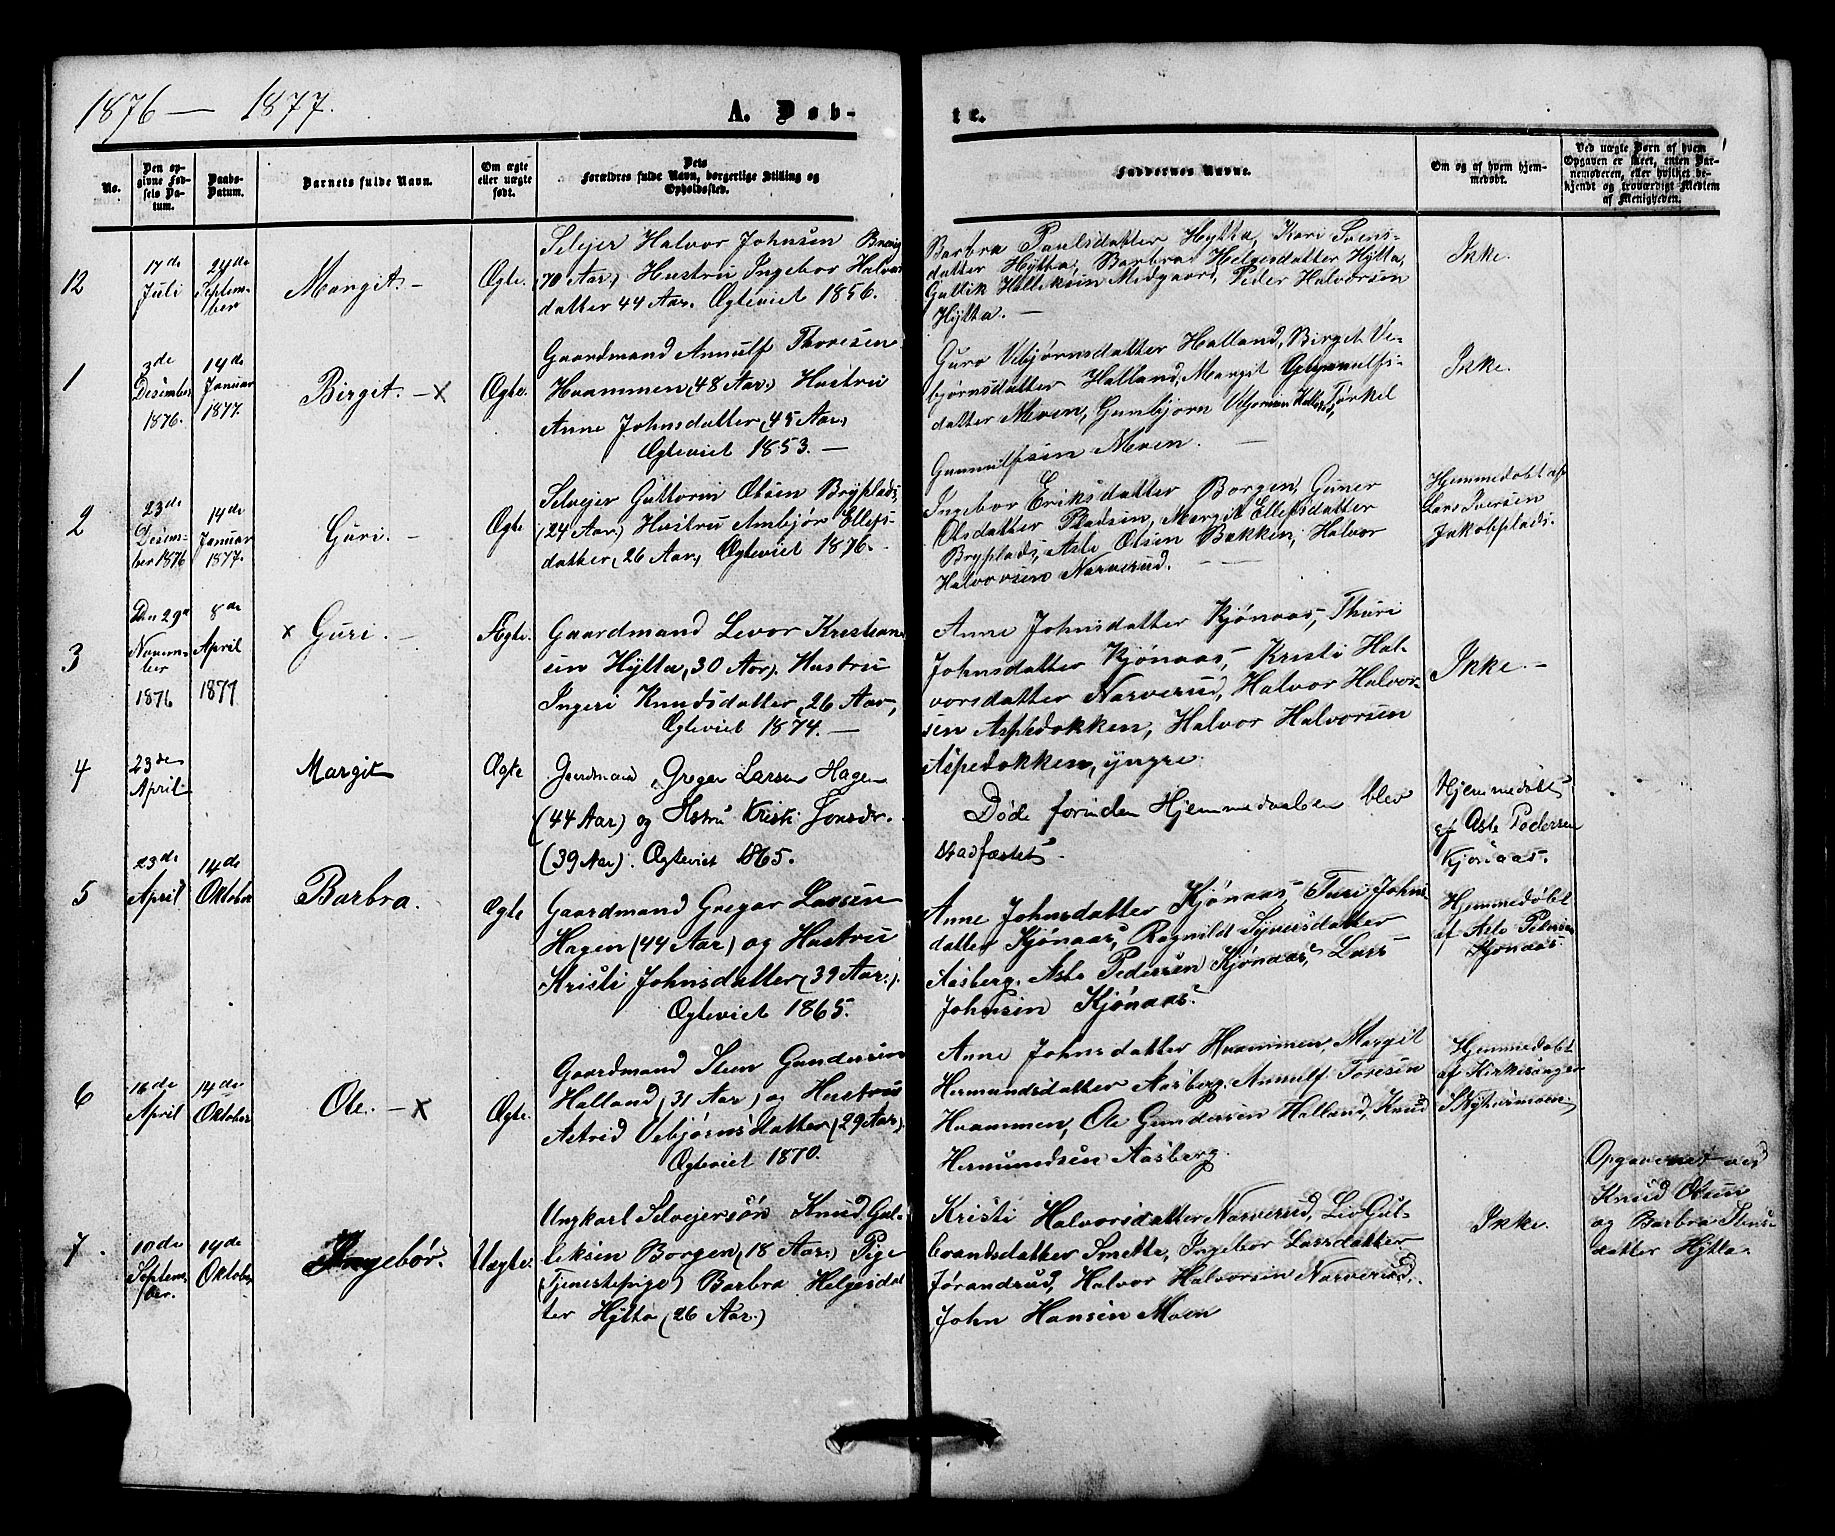 1876 — 1877.
A. Døb-
te.
No.
Den op-
givne Fød-
sels Da-
tum.
Daabs-
Datum.
Barnets fulde Navn.
Om ægte
eller uægte
født.
Dets
Forældres fulde Navn, borgerlige Stilling og
Opholdssted.
Faddernes Navne.
Om og af hvem hjem-
medøbt.
Ved uægte Børn af hvem
Opgaven er skeet, enten Bar-
nemoderen, eller hvilket be-
kjendt og troværdigt Medlem
af Menigheden.
12
17de
Juli
24de
Septem-
ber
Margit. –
Ægte.
Selvejer Halvor Johnsen
(70 Aar) Hustru Ingebor Halvors
datter 44 Aar. Ægteviet 1856.
Barbra Paulsdatter Hytta, Kari Svens-
datter Hytta, Barbra Helgesdatter Hytta,
Gullik Halliksen Medgaard, Peder Halvorsen
Hytta. –
Ikke.
1
3de
Desember
1876.
14de
Januar
1877.
Birget. – x
Ægte.
Gaardmand Annulf Thoresen
Hvammen (48 Aar) Hustru
Anne Johnsdatter (45 Aar)
Ægteviet 1853. –
Guro Vebjørnsdatter Halland, Birget Ve-
bjørnsdatter Halland, Margit Gunnulfs-
datter Moen, Gunbjørn Halland, Torkel
Gunnulfsen Moen. –
Ikke.
2
23de
Desem-
ber 1876
14de
Januar
1877.
Guri. –
Ægte
Selvejer Guttorm Olsen Bryplads,
(24 Aar) Hustru Ambjør Ellefs-
datter (26 Aar) Ægteviet 1876.
Ingebor Eriksdatter Borgen, Guner
Olsdatter Pladsen, Margit Ellefsdatter
Bryplads, Asle Olsen Bakken, Halvor
Halvorsen Narverud.
Hjemmedøbt af
Lars Iversen
Jakobplads.
3
Den 29de
Novem-
ber
1876
8de
April
1877
x Guri. –
Ægte.
Gaardmand Levor Kristian-
sen Hytta, 30 Aar). Hustru
Ingeri Knudsdatter, 26 Aar,
Ægteviet 1874. –
Anne Johnsdatter Kjønaas, Thuri
Johnsdatter Kjønaas, Kristi Hal-
vorsdatter Narverud, Halvor Halvor-
sen Aspedokken, Halvor Halvorsen
Aspedokken, yngre.
Ikke. –
4
23de
April
Margit
Ægte
Gaardmand Gregar Larsen Hagen
(44 Aar) og Hstru Kristi Jonsdr.
(39 Aar). Ægteviet 1865.
Døde førinden Hjemmedaaben blev
stadfæstet.
Hjemmedøbt
af Asle Pedersen
Kjønaas.
5
23de
April
14de
Oktober
Barbra.
Ægte
Gaardmand Gregar Larsen
Hagen (44 Aar) og Hustru
Kristi Johnsdatter (39 Aar).
Ægteviet 1865.
Anne Johnsdatter Kjønaas, Turi Johns
datter Kjønaas, Ragnild Syversdatter
Aasberg. Asle Pedersen Kjønaas, Lars
Johnsen Kjønaas.
Hjemmedøbt
af Asle Pedersen
Kjønaas.
6
16de
April
14de
Oktober
Ole. – x
Ægte.
Gaardmand Steen Gundersen
Halland (31 Aar) og Hustru
Astrid Vebjørnsdatter (29 Aar).
Ægteviet 1870.
Anne Johnsdatter Hvammen, Margit
Hermundsdatter Aasberg, Annulf Toresen
Hvammen, Ole Gundersen Halland, Knud
Hermundsen Aasberg.
Hjemmedøbt
af Kirkesanger
7.
10de
Septem-
ber.
14de
Oktober
Ingebør.
Uægte.
Ungkarl Selvejersøn Knud Gul-
leksen Borgen (18 Aar) Pige
(Tjenestepige) Barbra Helgesdat
ter Hytta (26 Aar)
Kristi Halvorsdatter Narverud, Liv Gul-
brandsdatter Smetta, Ingebor Larsdatter
Jørandrud, Halvor Halvorsen Narverud,
John Hansen Moen
Ikke.
Opgavenet ved
Knud Olsen
og Barbra Stens-
datter Hytta.